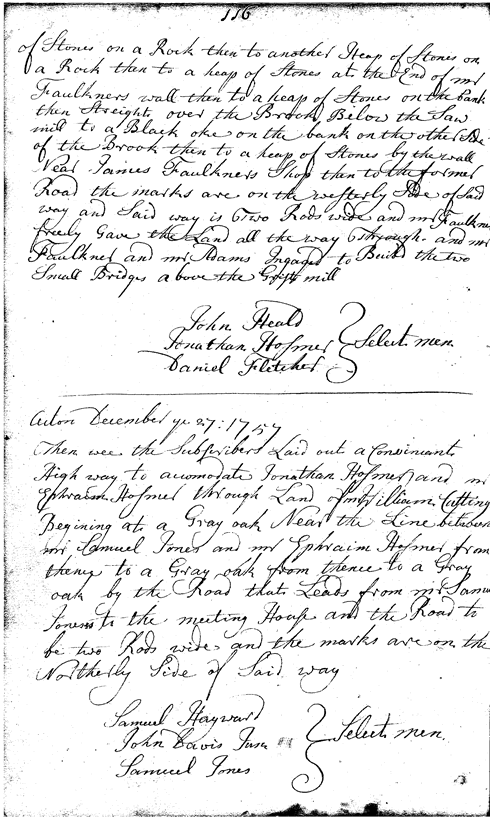 116
of Stones on a Rock then to another Heap of Stones on
a Rock then to a heap of Stones at the End of mr
Faulkners wall then to a heap of Stones on the bank
then Streight over the Brook Below the Saw
mill to a Black oke on the bank on the other Side
of the Brook then to a heap of Stones by the wall
Near James Faulkners Shop then to the former
Road the marks are on the westerly Side of Said
way and Said way is two Rods wide and mr Faulkner
freely Gave the Land all the way through. and mr
Faulkner and mr Adams Ingaged to Build the two
Small Bridges above the Grist mill
John Heald
Jonathan Hosmer
Daniel Fletcher
Select men
Acton December ye 27: 1757
Then wee the Subscribers Laid out a Conviniant
High way to acomodate Jonathan Hosmer and mr
Ephraim Hosmer through Land of mr William Cutting
Begining at a Gray oak Near the Line between
mr Samuel Jones and mr Ephraim Hosmer from
thence to a Gray oak from thence to a Gray
oak by the Road that Leads from mr Samu
Joness to the meeting House and the Road to
be two Rods wide and the marks are on the
Northerly Side of Said way
Samuel Hayward
John Davis Junr
Samuel Jones
Select men.